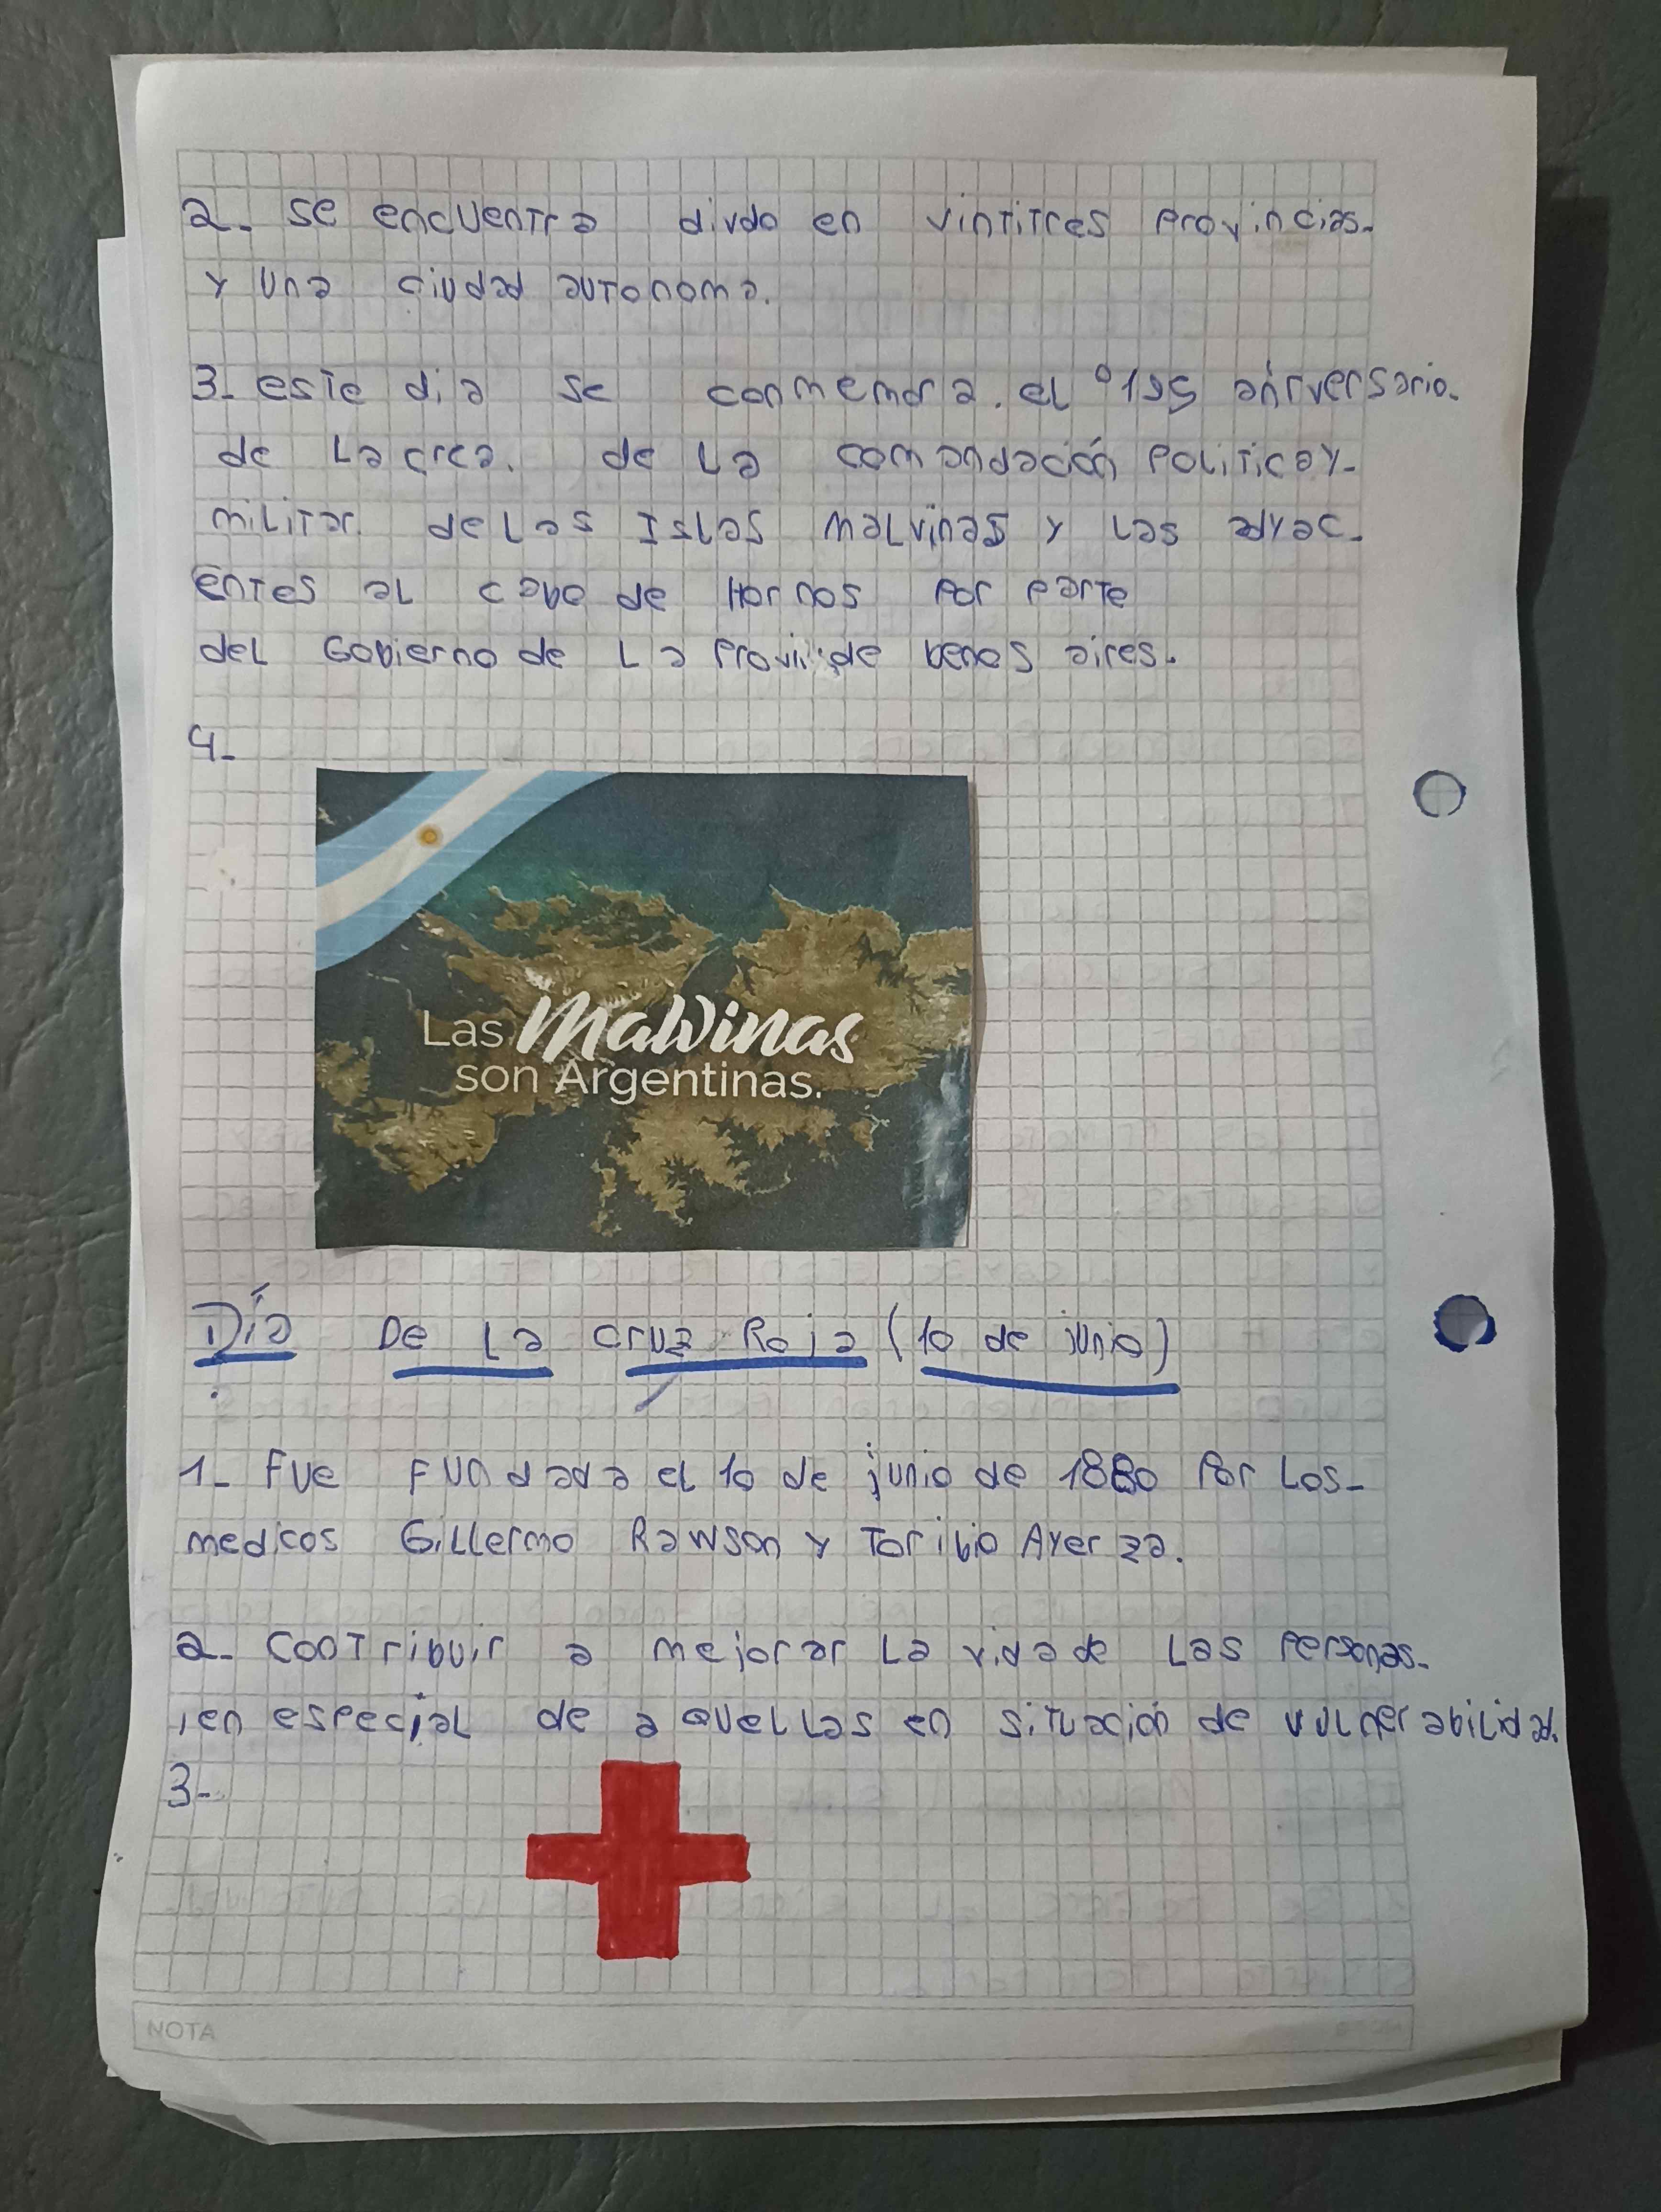 2- Se encuentra divdo en vintitres provincias-
y una ciudad autonoma.
3- este dia se conmemora. el °195 aniversario-
de La crea. de La comandación Politica y-
militar. de Las Islas malvinas y Las adyac-
entes al cabo de Hornos Por parte
del Gobierno de La Provi de benos aires.
4-
Las Malvinas
son Argentinas.
Día De La Cruz Roja (10 de junio)
1- Fue Fundada el 10 de junio de 1880 Por Los-
medicos Gillermo Rawson y Toribio Ayerza.
2- Contribuir a mejorar La vida de Las Personas-
,en especial de aquellas en situación de vulnerabilidad.
3-
NOTA